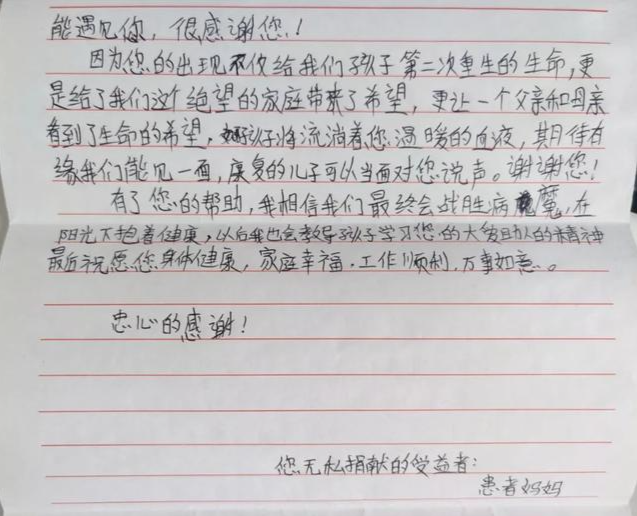 能遇见你，很感谢您！
因为您的出现不仅给我们孩子第二次重生的生命，更
是给了我们这个绝望的家庭带来了希望，更让一个父亲和母亲
看到了生命的希望，孩子将流淌着您温暖的血液，其月待有
缘我们能见一面，康复的儿子可以当面对您说声。谢谢您！
有了您的帮助，我相信我们最终会战胜病魔，在
阳光下抱着健康，以后我也会教导孩子学习您的大爱助人的精神
最后祝愿您身体健康，家庭幸福．工作顺利．万事如意。
忠心的感谢！
您无私捐献的受益者：
患者妈妈